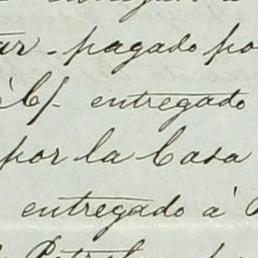 entregado à
ar - pagado po
è C/. entregado
por la Casa
entregado à